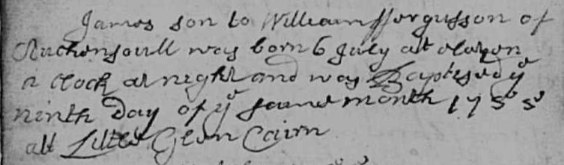 James son to William ffergusson of
Auchensoull was born 6 July att eleven
a clock at night and was Baptised ye
ninth Day of ye same month 1735
att Little Glen Cairn